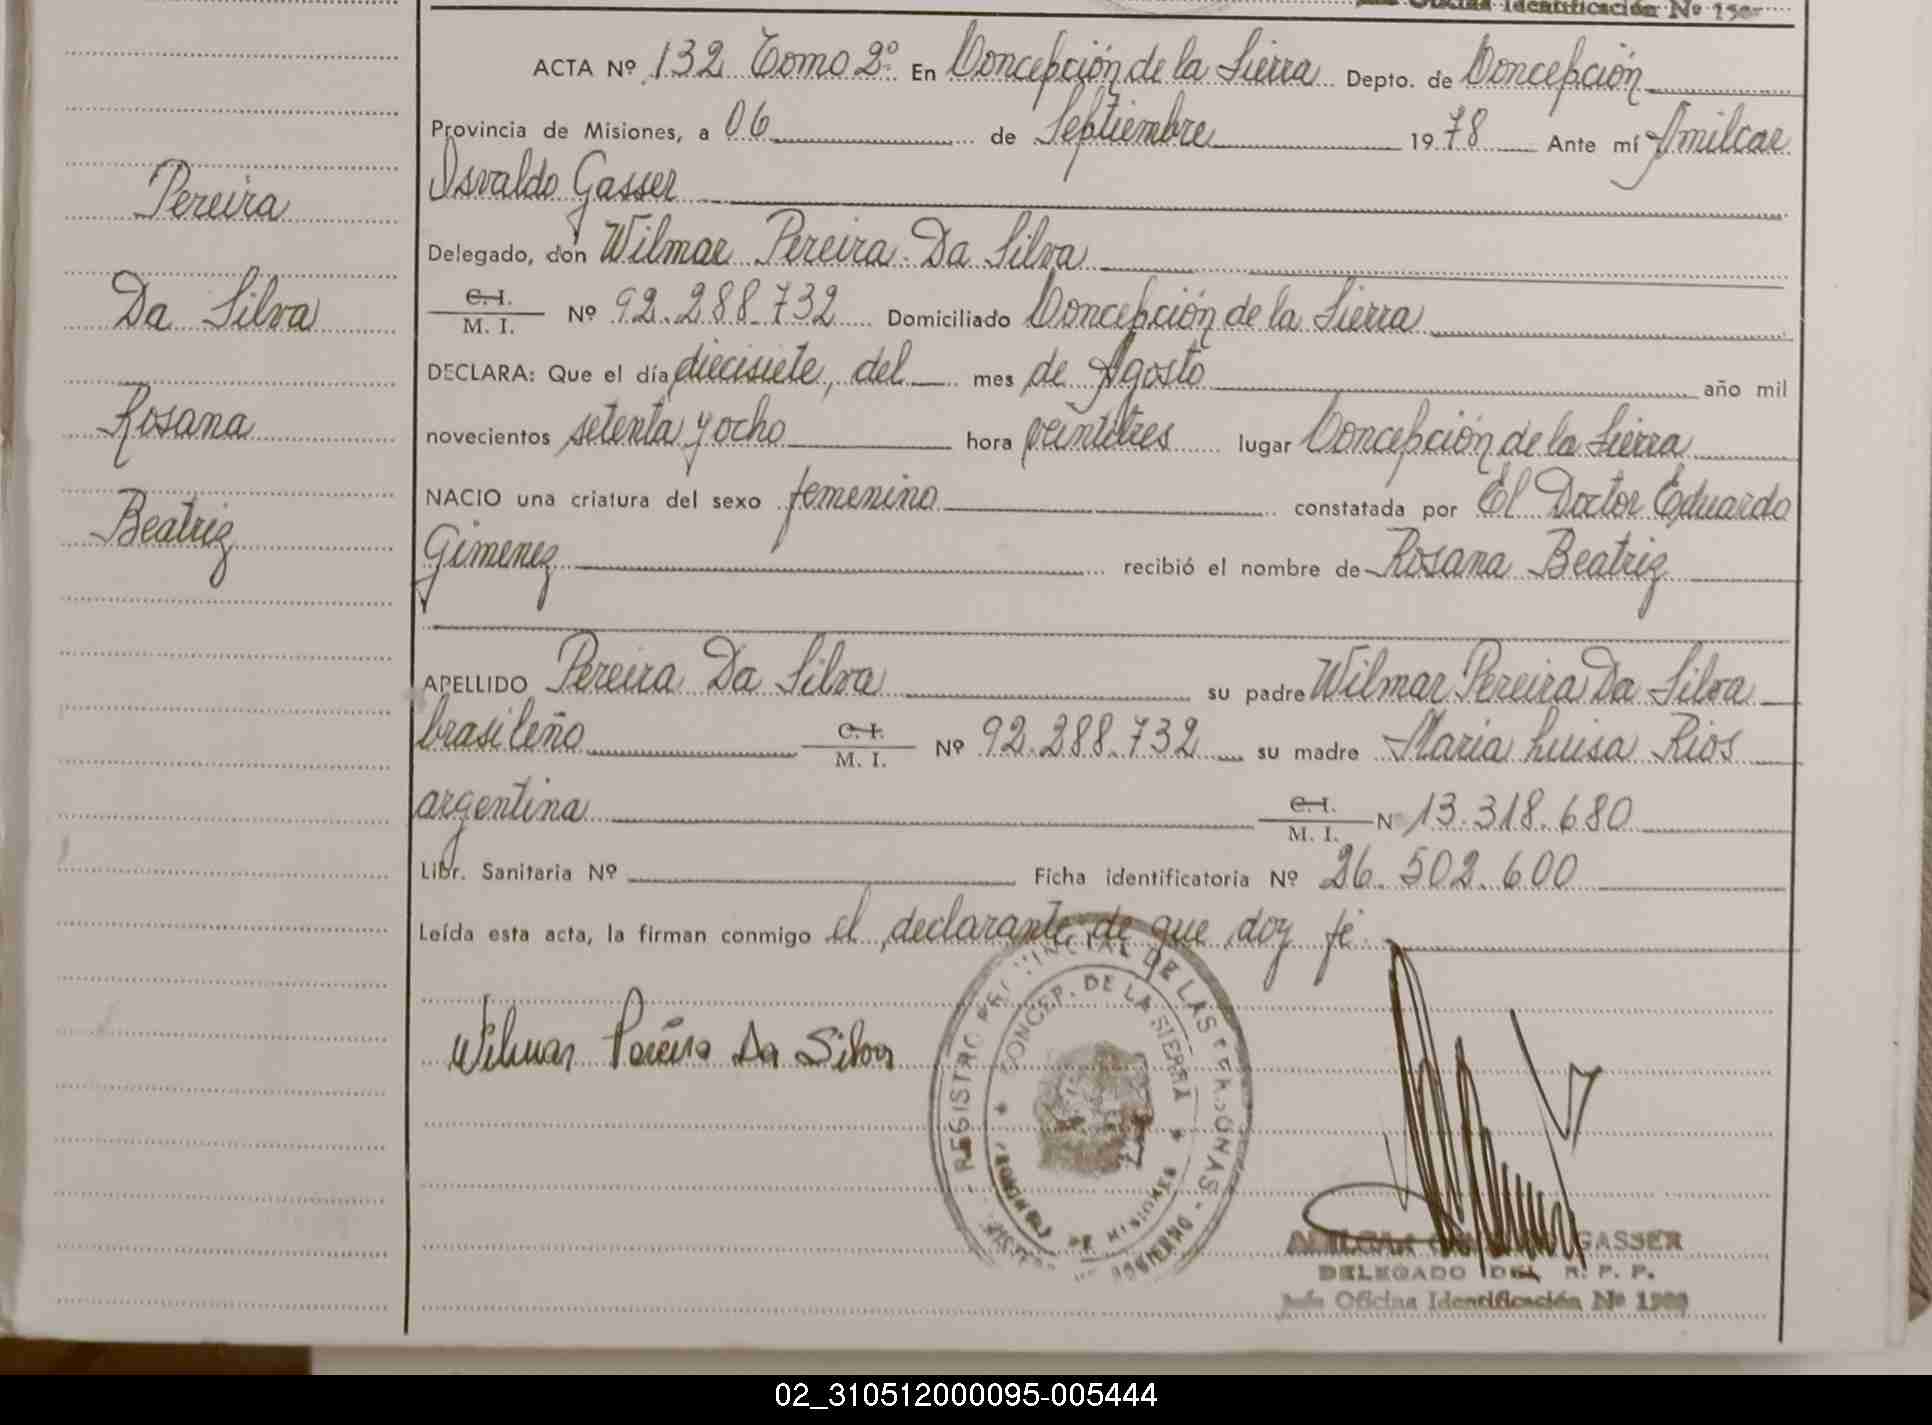 Jefe Oficina Identificación Nº
ACTA Nº 132 Tomo 2º En Concepción de la Sierra Depto. de Concepción
Provincia de Misiones, a 06 de Septiembre 1978 Ante mí Amilcar
Osvaldo Gasser
Delegado, don Wilmar Pereira Da Silva
C. I.
M. I. Nº 92.288.732 Domiciliado Concepción de la Sierra
DECLARA: Que el día diecisiete, del mes de Agosto año mil
novecientos setenta y ocho hora veintitres lugar Concepción de la Sierra
NACIO una criatura del sexo femenino constatada por El Doctor Eduardo
Gimenez recibió el nombre de Rosana Beatriz
APELLIDO Pereira Da Silva su padre Wilmar Pereira Da Silva
brasileño C. I.
M. I. Nº 92.288.732 su madre Maria Luisa Rios
argentina C. I.
M. I. Nº 13.318.680
Libr. Sanitaria Nº Ficha identificatoria Nº 26.502.600
Leída esta acta, la firman conmigo el declarante de que doy fé.
Pereira
Da Silva
Rosana
Beatriz
Wilmar Pereira Da Silva
REGISTRO PROVINCIAL DE LAS PERSONAS
CONCEP. DE LA SIERRA
DE MISIONES
GOBIERNO
AMILCAR GASSER
DELEGADO DEL R. P. P.
Jefe Oficina Identificación Nº
02_310512000095-005444